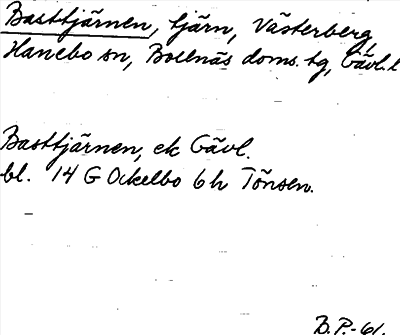 Basttjärnen, tjärn, Västerberg,
Hanebo sn, Bollnäs doms. tg, Gävl. l
Basttjärnen, ek Gävl.
bl. 14 G Ockelbo 6 h Tönsen.
B.P.-61.